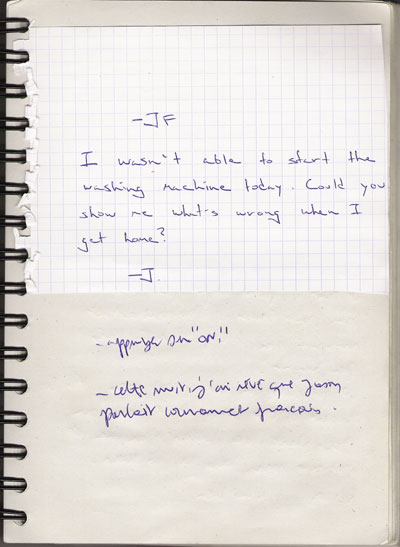 -JF
I wasn't able to start the
washing machine today. Could you
show me what's wrong when I
get home?
-J.
- appuyer sur "ON!"
- cette nuit, j'ai rêvé que Jason
parlait couramment français.